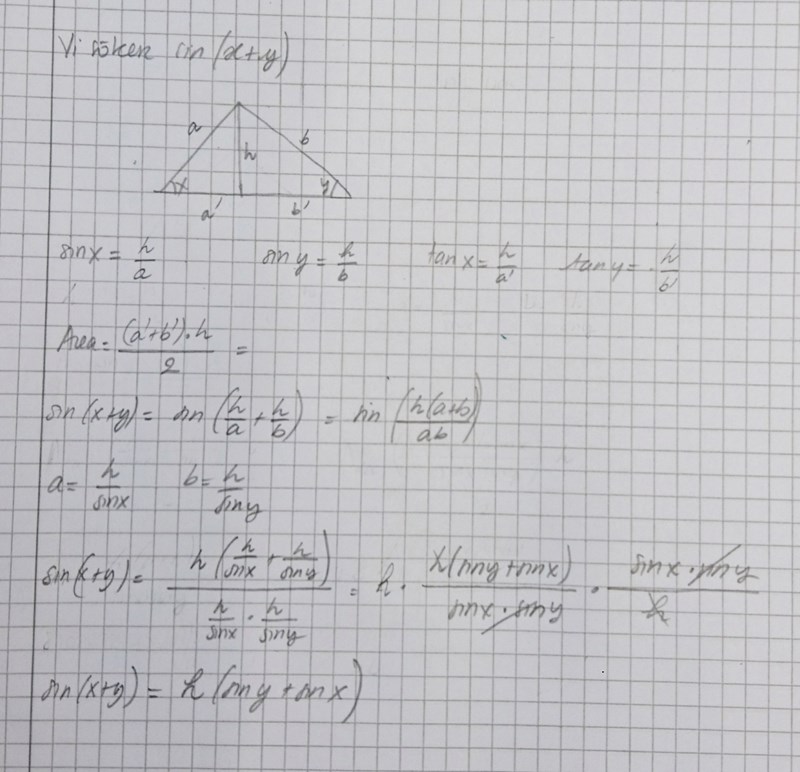 Vi söker sin(x+y)
a b
h
x y
a' b'
sin x = h/a sin y = h/b tan x = h/a' tan y = h/b'
Area = (a'+b')·h/2 =
sin(x+y) = sin(h/a + h/b) = sin(h(a+b)/ab)
a = h/sin x b = h/sin y
sin(x+y) = h(h/sin x + h/sin y)/(h/sin x · h/sin y) = h · h(sin y + sin x)/(sin x · sin y) · (sin x · sin y)/h
sin(x+y) = h(sin y + sin x)